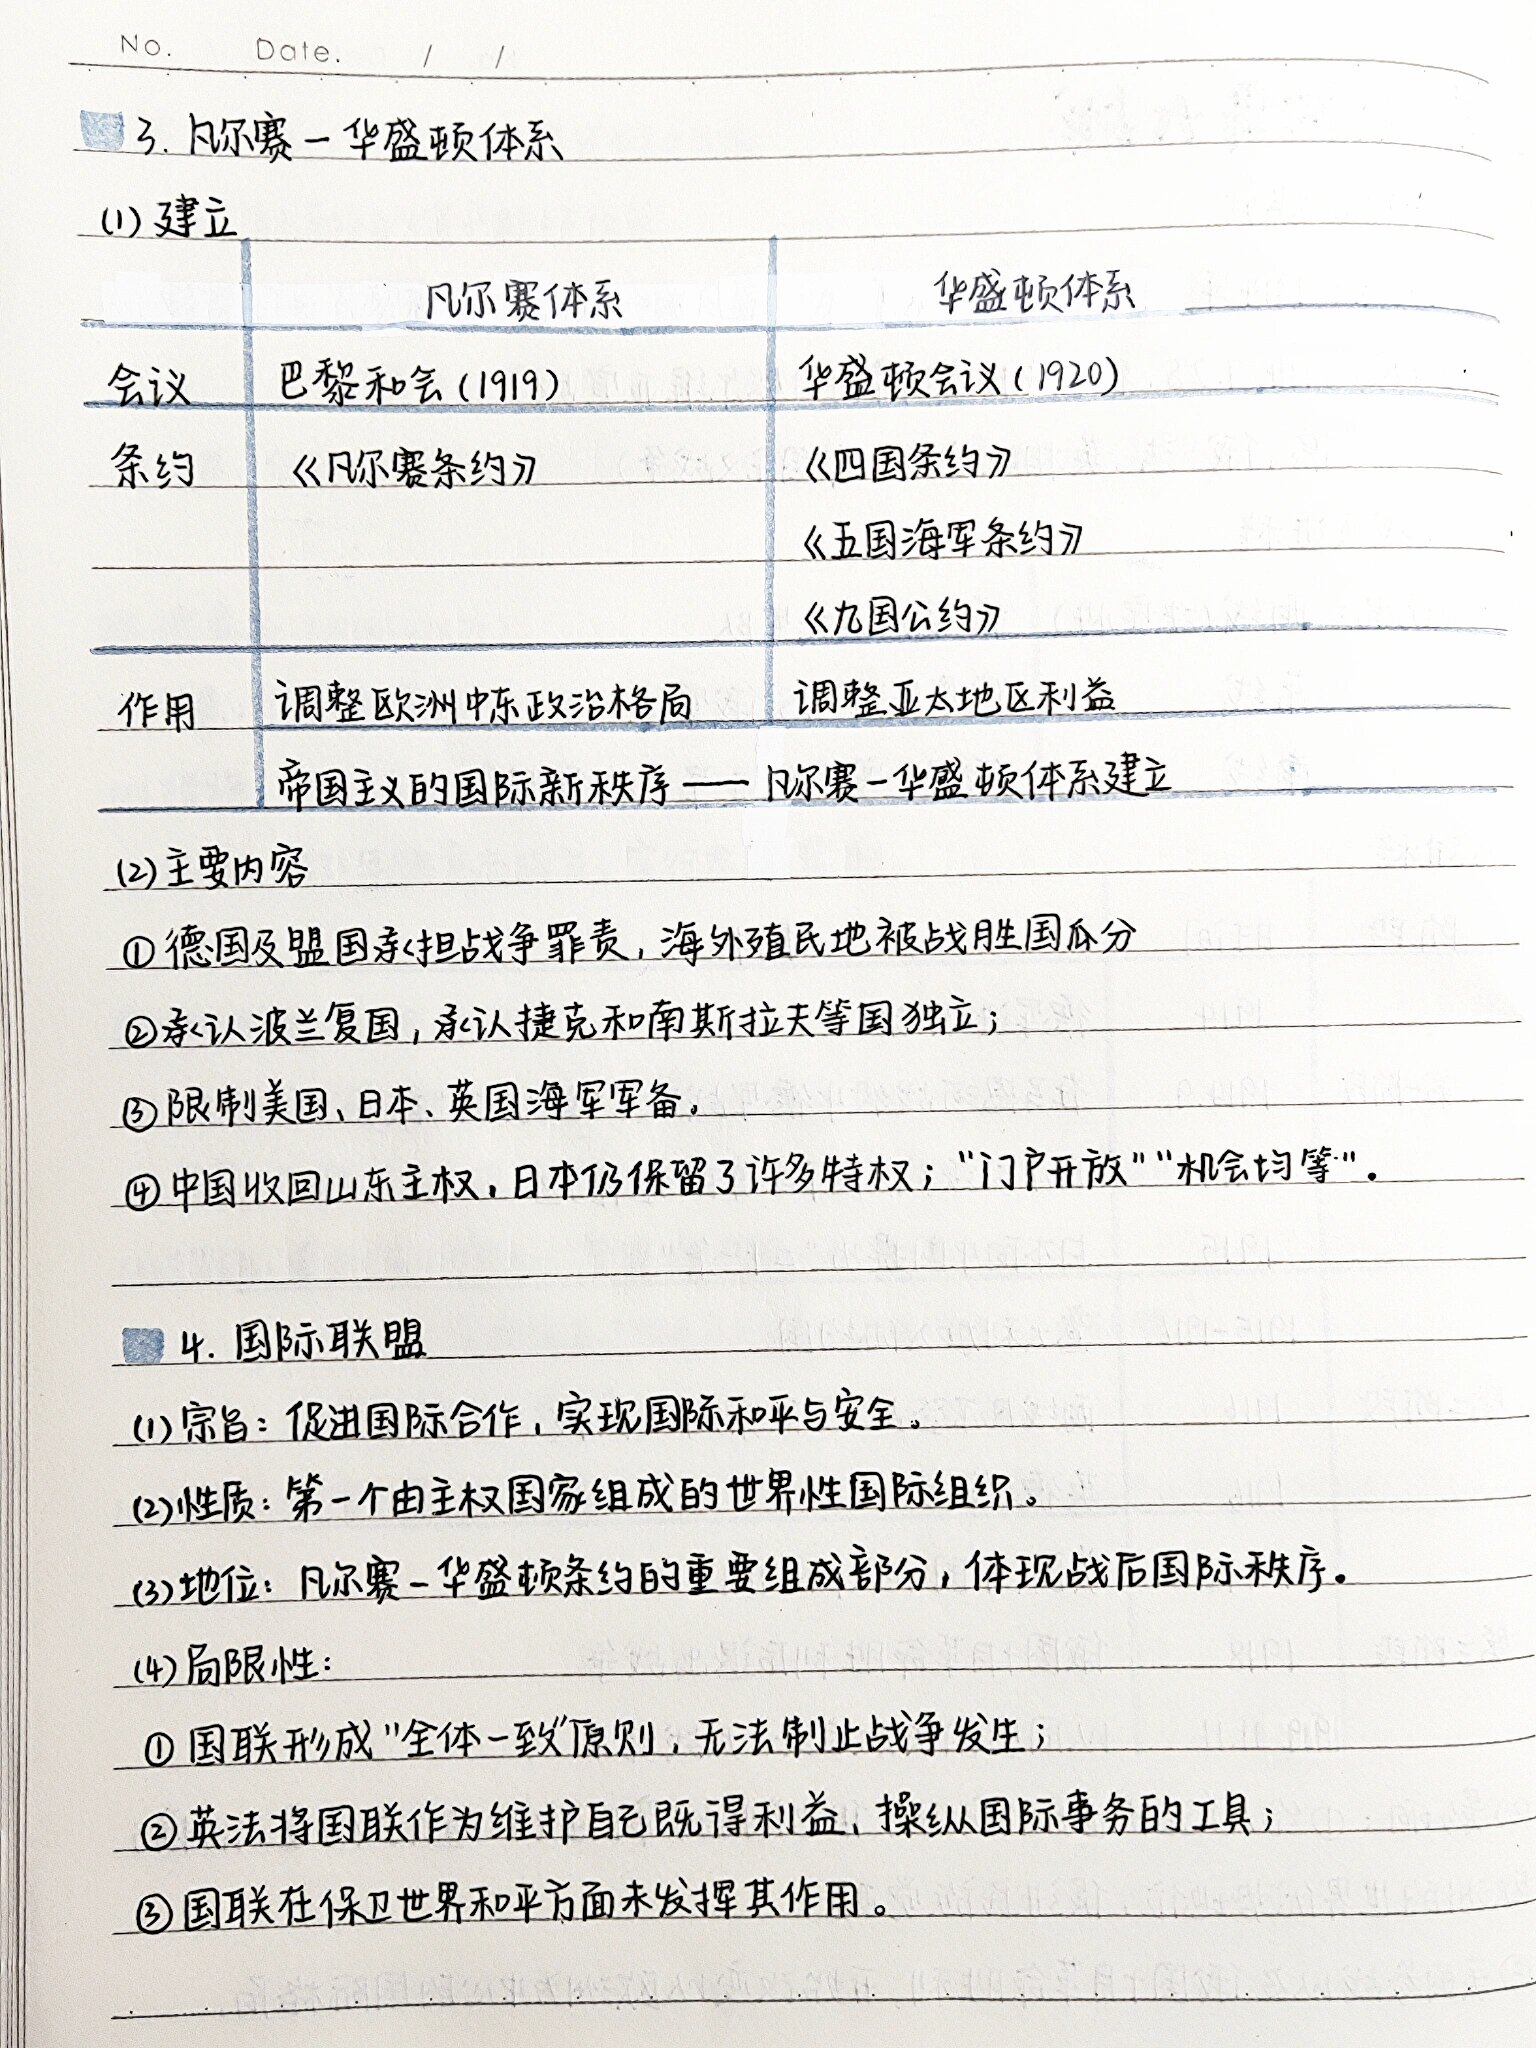 No.    Date.    /    /
3. 凡尔赛—华盛顿体系
(1) 建立
凡尔赛体系 华盛顿体系
会议 巴黎和会(1919) 华盛顿会议(1920)
条约 《凡尔赛条约》 《四国条约》
《五国海军条约》
《九国公约》
作用 调整欧洲中东政治格局 调整亚太地区利益
帝国主义的国际新秩序——凡尔赛—华盛顿体系建立
(2) 主要内容
①德国及盟国承担战争罪责，海外殖民地被战胜国瓜分
②承认波兰复国，承认捷克和南斯拉夫等国独立；
③限制美国、日本、英国海军军备。
④中国收回山东主权，日本仍保留了许多特权；“门户开放”“机会均等”。
4. 国际联盟
(1) 宗旨：促进国际合作，实现国际和平与安全。
(2) 性质：第一个由主权国家组成的世界性国际组织。
(3) 地位：凡尔赛—华盛顿条约的重要组成部分，体现战后国际秩序。
(4) 局限性：
①国联形成“全体一致”原则，无法制止战争发生；
②英法将国联作为维护自己既得利益、操纵国际事务的工具；
③国联在保卫世界和平方面未发挥其作用。